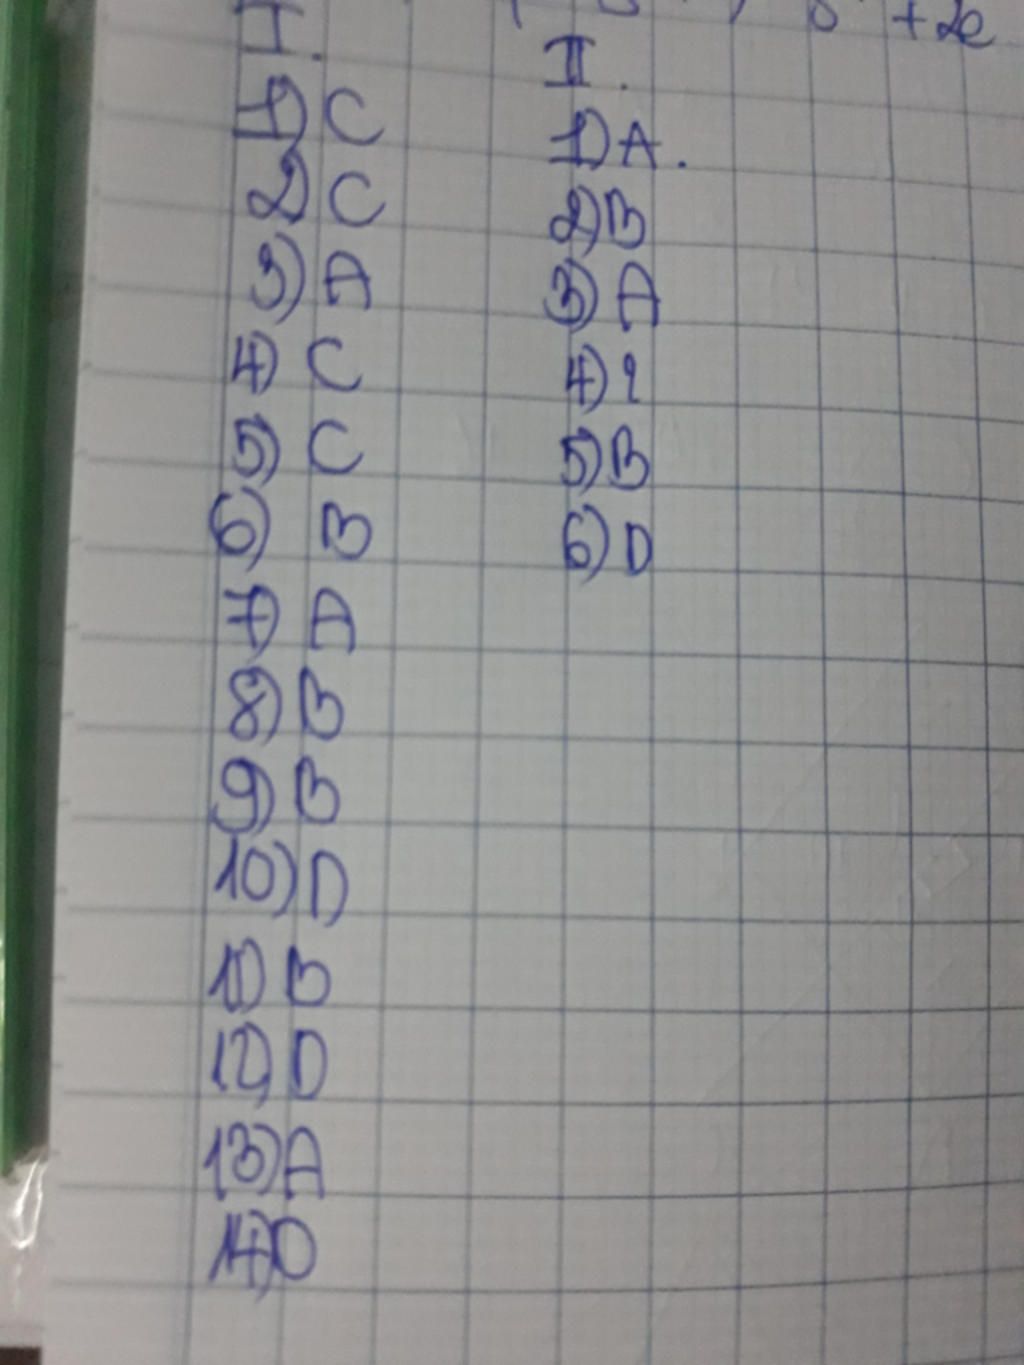 +2e
I.
1) C
2) C
3) A
4) C
5) C
6) B
7) A
8) B
9) B
10) D
11) B
12) D
13) A
14) D
II.
1) A.
2) B
3) A
4) ?
5) B
6) D